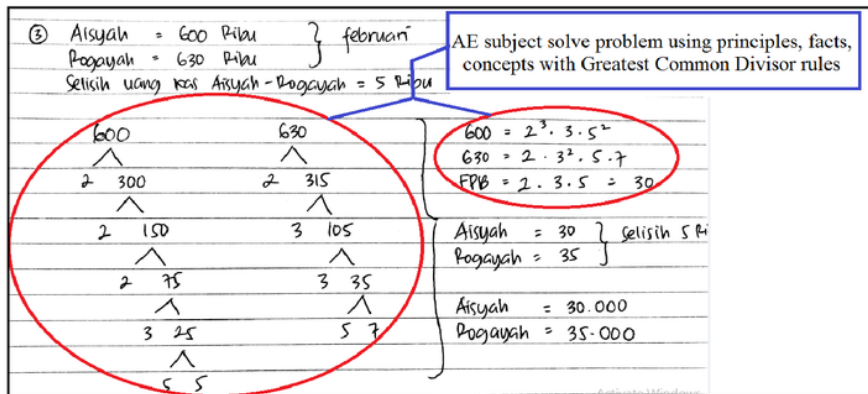 ③ Aisyah = 600 Ribu } februari
Rogayah = 630 Ribu
Selisih uang kas Aisyah - Rogayah = 5 Ribu
AE subject solve problem using principles, facts,
concepts with Greatest Common Divisor rules
600 630
2 300 2 315
2 150 3 105
2 75 3 35
3 25 5 7
5 5
600 = 2³ . 3 . 5²
630 = 2 . 3² . 5 . 7
FPB = 2 . 3 . 5 = 30
Aisyah = 30 } selisih 5 Ri
Rogayah = 35
Aisyah = 30.000
Rogayah = 35.000
Activate Windows